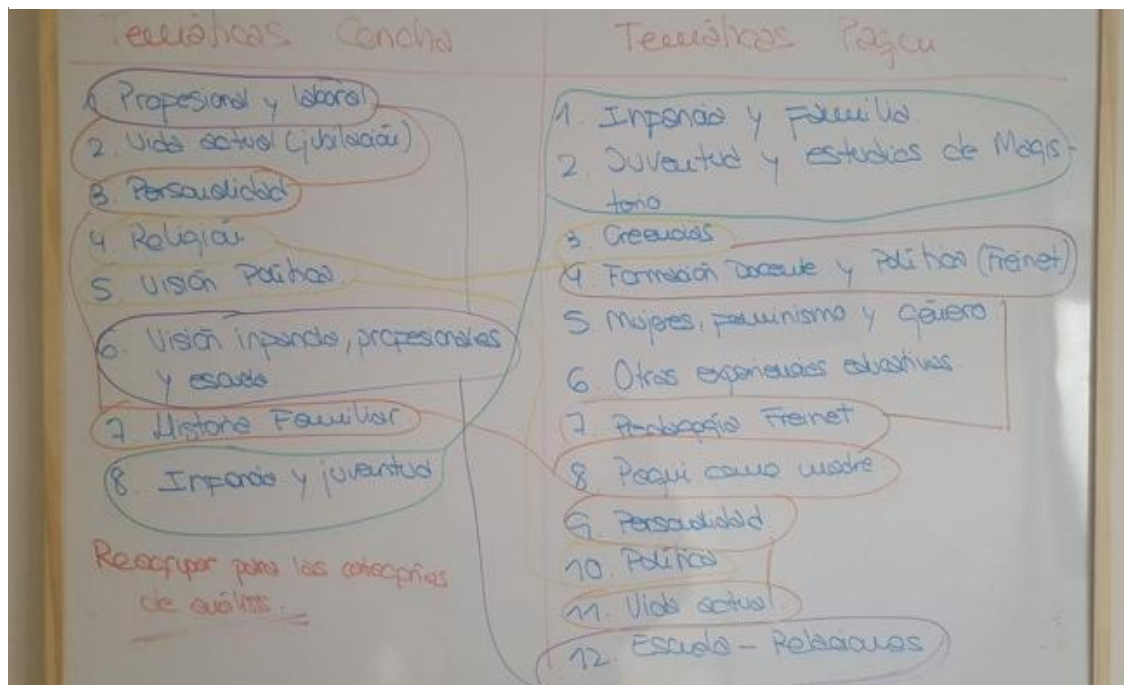 Temáticas Concha
1. Profesional y laboral
2. Vida actual (jubilación)
3. Personalidad
4 Religión
5 Visión Política
6. Visión infancia, profesionales
y escuela
7. Historia Familiar
8. Infancia y juventud
Reagrupar para las categorías
de análisis.
Temáticas Paqui
1. Infancia y Familia
2. Juventud y estudios de Magis-
terio
3. Creencias
4 Formación Docente y Política (Freinet)
5 Mujeres, feminismo y género
6. Otras experiencias educativas
7. Pedagogía Freinet
8. Paqui como madre
9 Personalidad
10. Política
11. Vida actual
12. Escuela - Relaciones